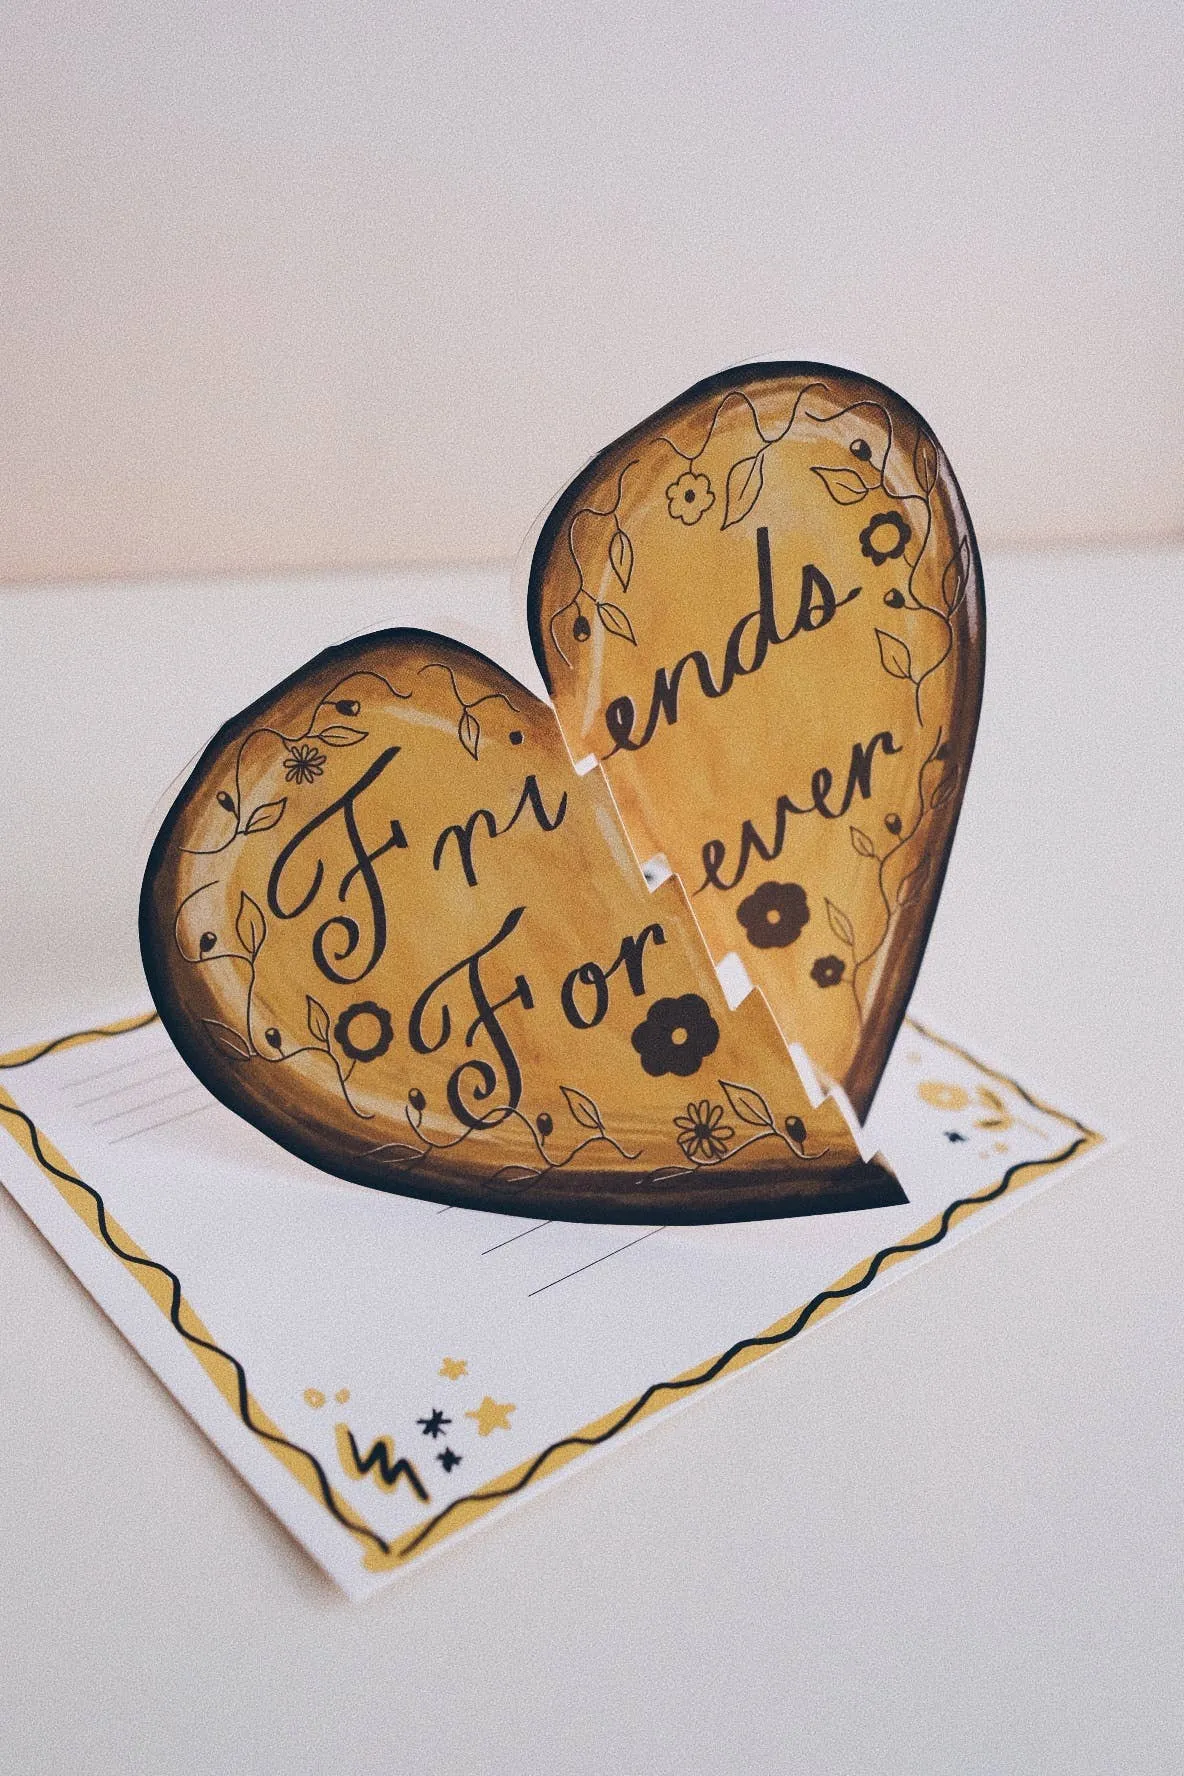 Friends
Forever